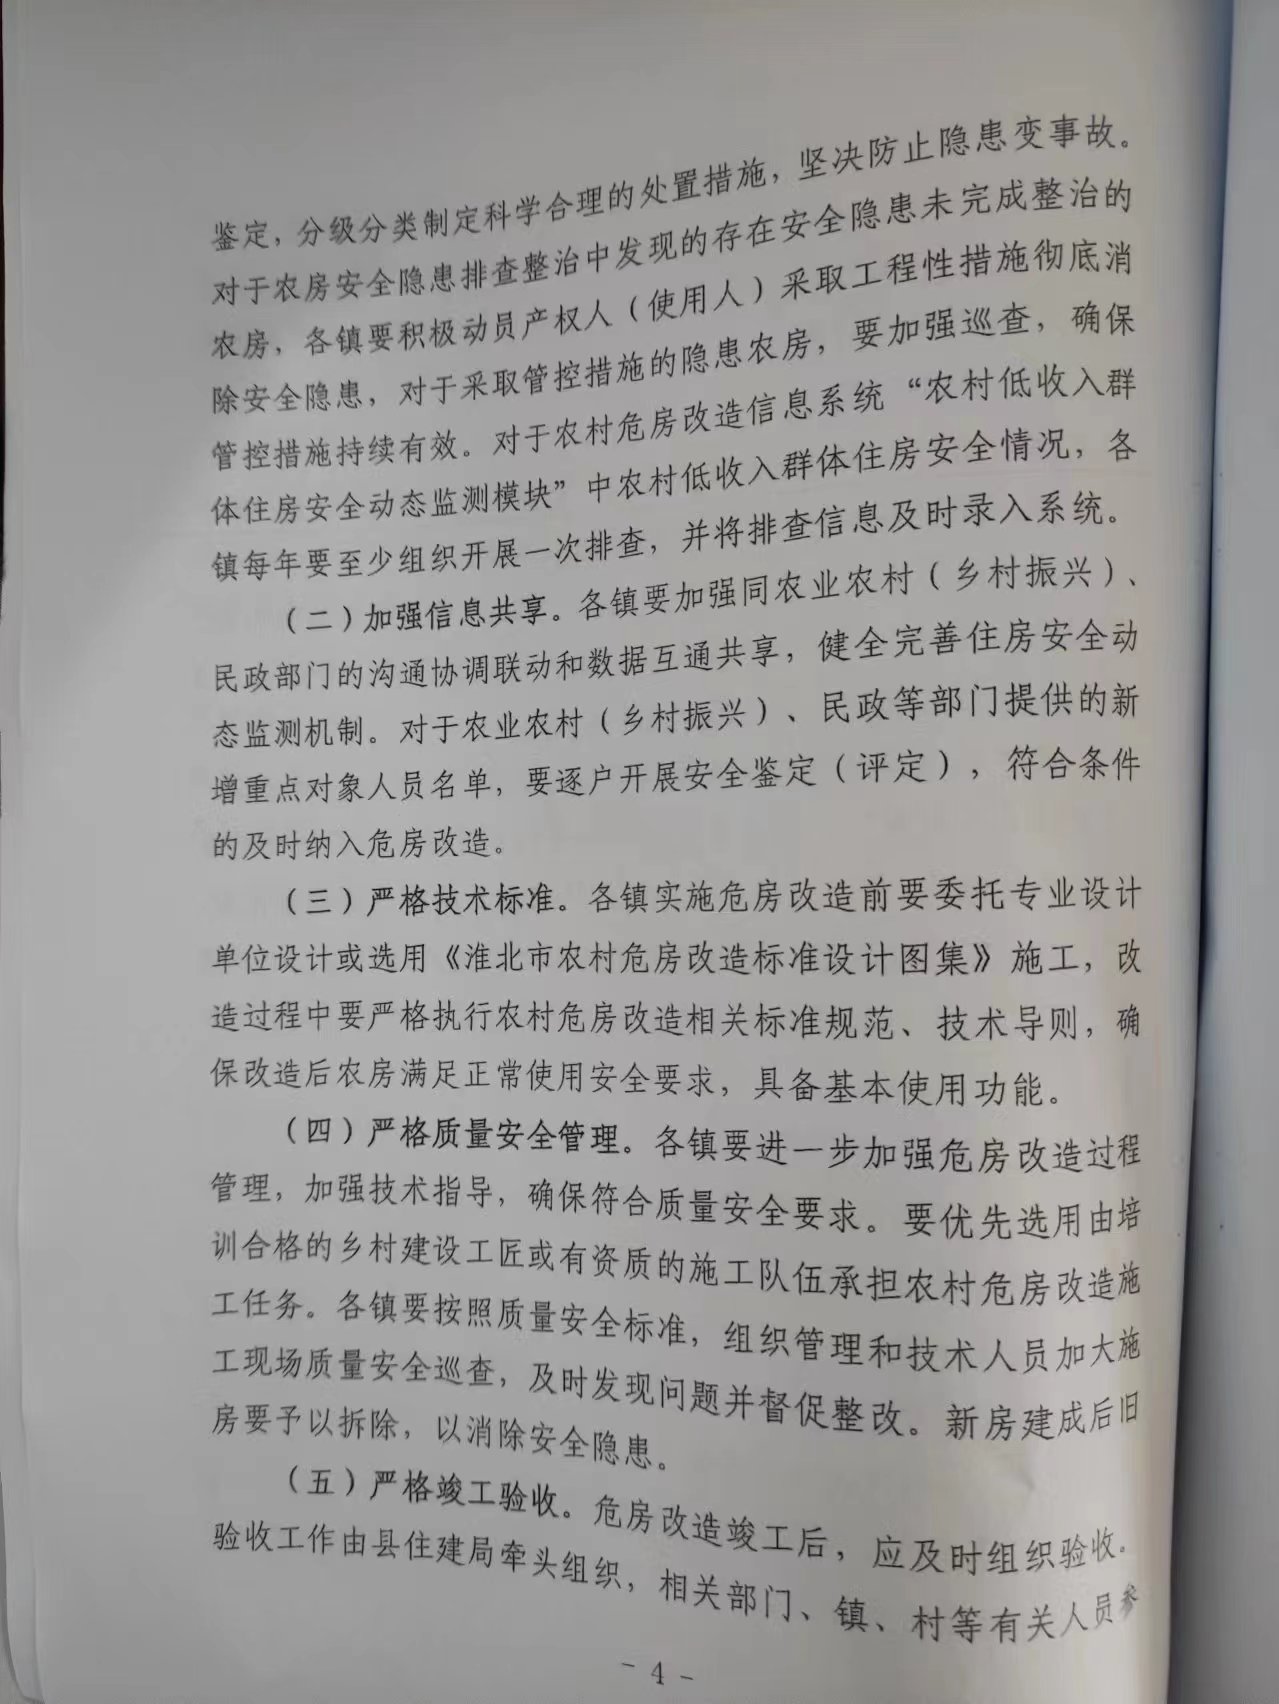 鉴定，分级分类制定科学合理的处置措施，坚决防止隐患变事故。
对于农房安全隐患排查整治中发现的存在安全隐患未完成整治的
农房，各镇要积极动员产权人（使用人）采取工程性措施彻底消
除安全隐患，对于采取管控措施的隐患农房，要加强巡查，确保
管控措施持续有效。对于农村危房改造信息系统“农村低收入群
体住房安全动态监测模块”中农村低收入群体住房安全情况，各
镇每年要至少组织开展一次排查，并将排查信息及时录入系统。
（二）加强信息共享。各镇要加强同农业农村（乡村振兴）、
民政部门的沟通协调联动和数据互通共享，健全完善住房安全动
态监测机制。对于农业农村（乡村振兴）、民政等部门提供的新
增重点对象人员名单，要逐户开展安全鉴定（评定），符合条件
的及时纳入危房改造。
（三）严格技术标准。各镇实施危房改造前要委托专业设计
单位设计或选用《淮北市农村危房改造标准设计图集》施工，改
造过程中要严格执行农村危房改造相关标准规范、技术导则，确
保改造后农房满足正常使用安全要求，具备基本使用功能。
（四）严格质量安全管理。各镇要进一步加强危房改造过程
管理，加强技术指导，确保符合质量安全要求。要优先选用由培
训合格的乡村建设工匠或有资质的施工队伍承担农村危房改造施
工任务。各镇要按照质量安全标准，组织管理和技术人员加大施
工现场质量安全巡查，及时发现问题并督促整改。新房建成后旧
房要予以拆除，以消除安全隐患。
（五）严格竣工验收。危房改造竣工后，应及时组织验收。
验收工作由县住建局牵头组织，相关部门、镇、村等有关人员参
- 4 -